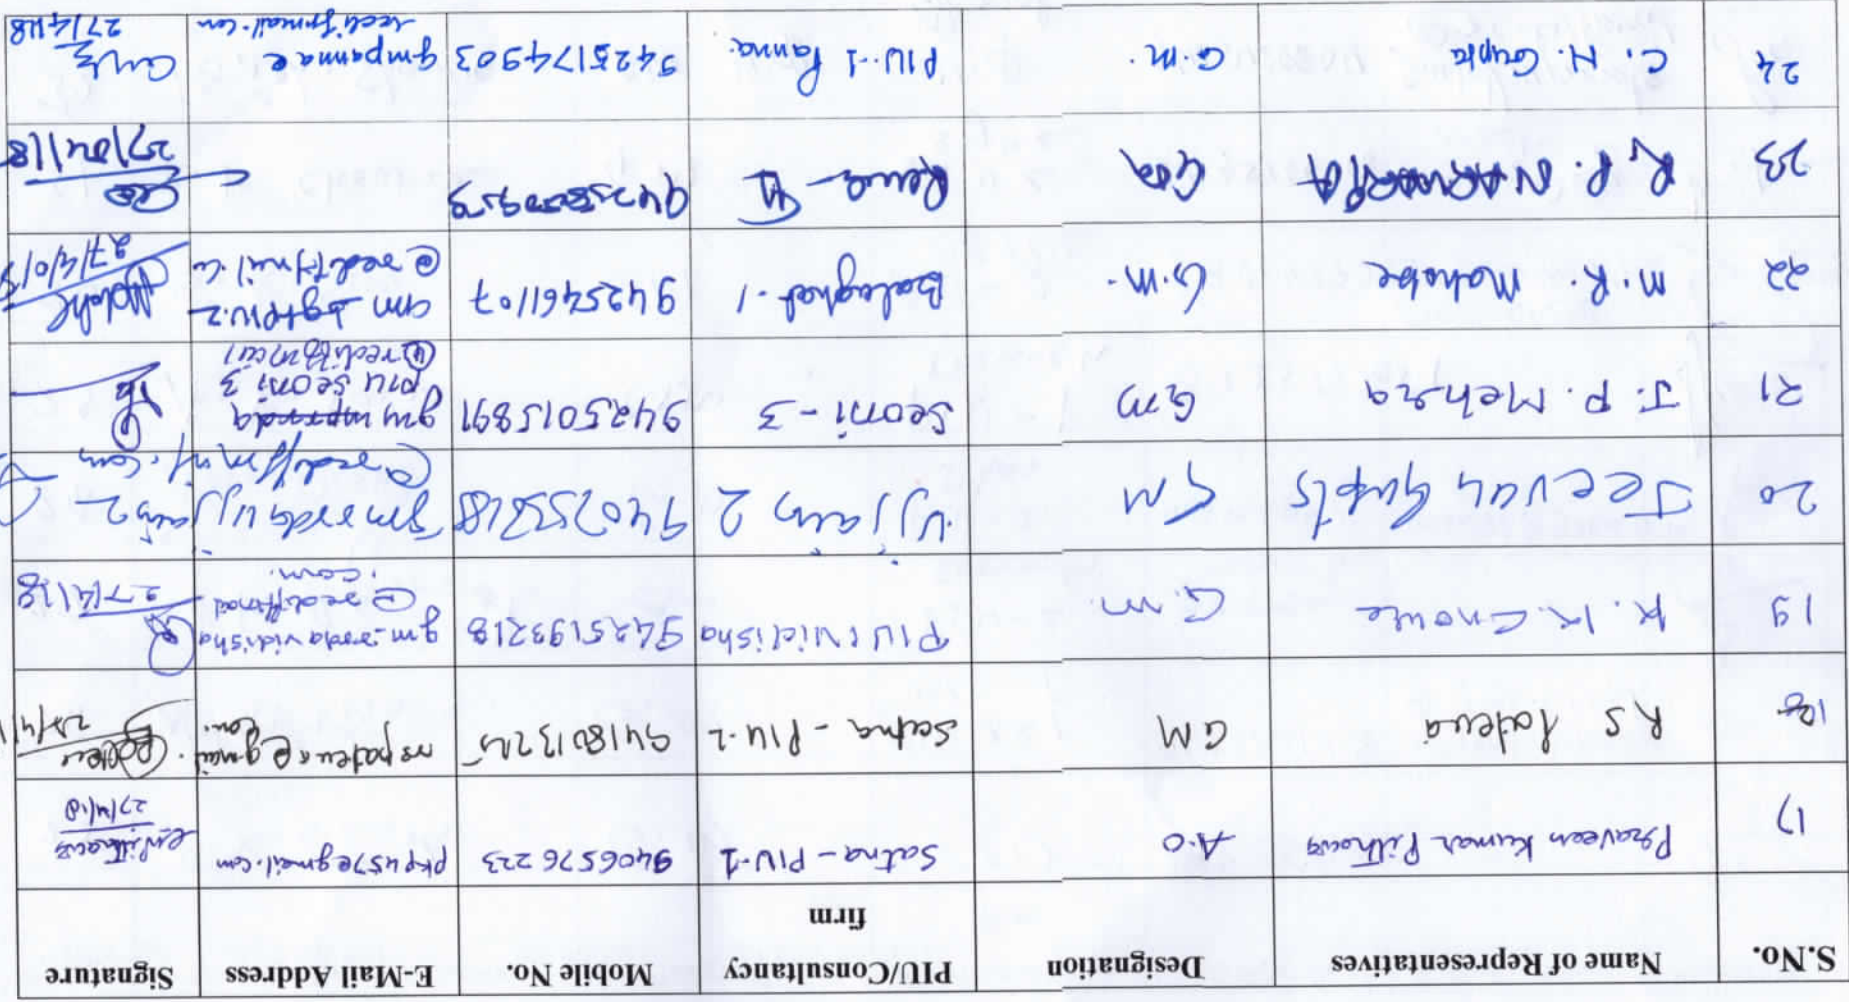 S.No. Name of Representatives Designation PIU/Consultancy firm Mobile No. E-Mail Address Signature
17 Praveen Kumar Pithawa A.O Satna - PIU-1 9406576223 pkp457@gmail.com 27/4/18
18 RS Pateria GM Satna - PIU-2 rspateria@gmail.com
19 K. K. G.M. PIU 1 Vidisha 9425193218 gm_rrdavidisha@rediffmail.com. 27/4/18
20 Jeevan Gupta GM Ujjain 2 gmrrdaujjain2@rediffmail.com
21 J. P. Mehra GM Seoni - 3 9425015891 gm piu seoni 3 @rediffmail
22 M.R. Mahobe G.M. Balaghat - 1 9425461107 @rediffmail.co 27/4/018
23 R.P. GM Rewa - 27/04/18
24 C. H. Gupta G.M. PIU-1 Panna. 9425174903 gmpanna@rediffmail.com 27/4/18